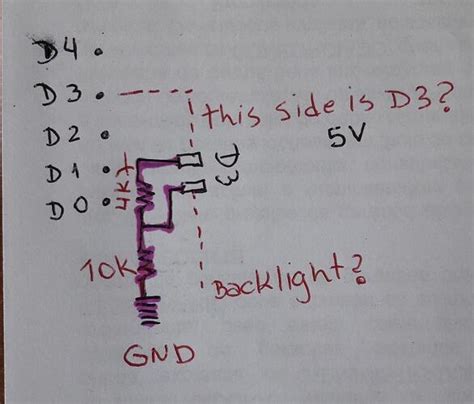 D4
D3
this side is D3?
5V
D2
D1
D3
D0
4k7
10K
Backlight?
GND